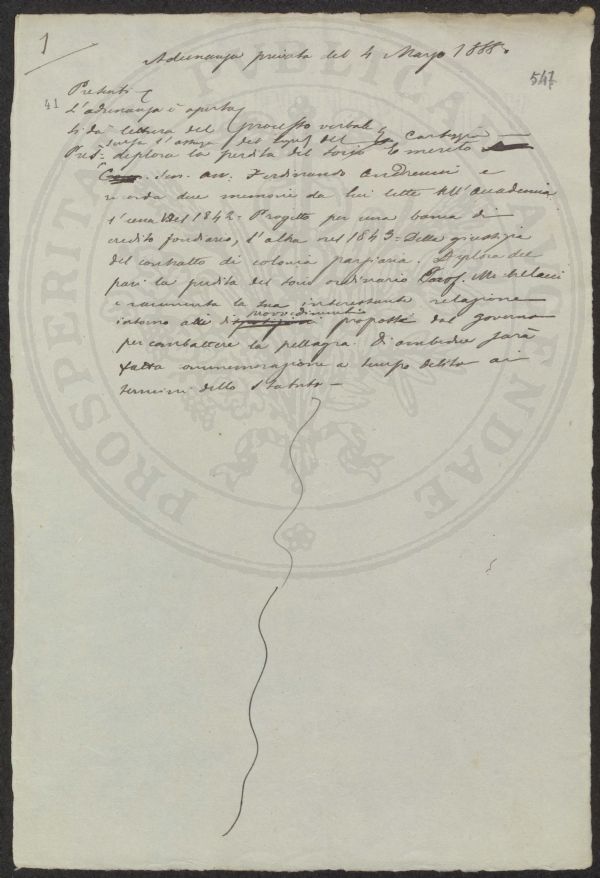 1
Adunanza privata del 4 Marzo 1888.
547
Presenti
41
L'adunanza è aperta
Si dà lettura del processo verbale del carteggio
Pres. deplora la perdita del socio Emerito
Sen. Av. Ferdinando Andreucci e
ricorda due memorie da lui lette all'Accademia
l'una nel 1842 = Progetto per una banca di
credito fondiario, l'altra nel 1843 = Della giustizia
del contratto di colonia parziaria. Deplora del
pari la perdita del socio ordinario Prof. Michelacci
e rammenta la sua interessante relazione
provvedimenti
intorno alle proposte dal governo
per combattere la pellagra. Di ambedue sarà
fatta commemorazione a tempo debito ai
termini dello Statuto —
PUBLICAE
PROSPERITATI
AUGENDAE